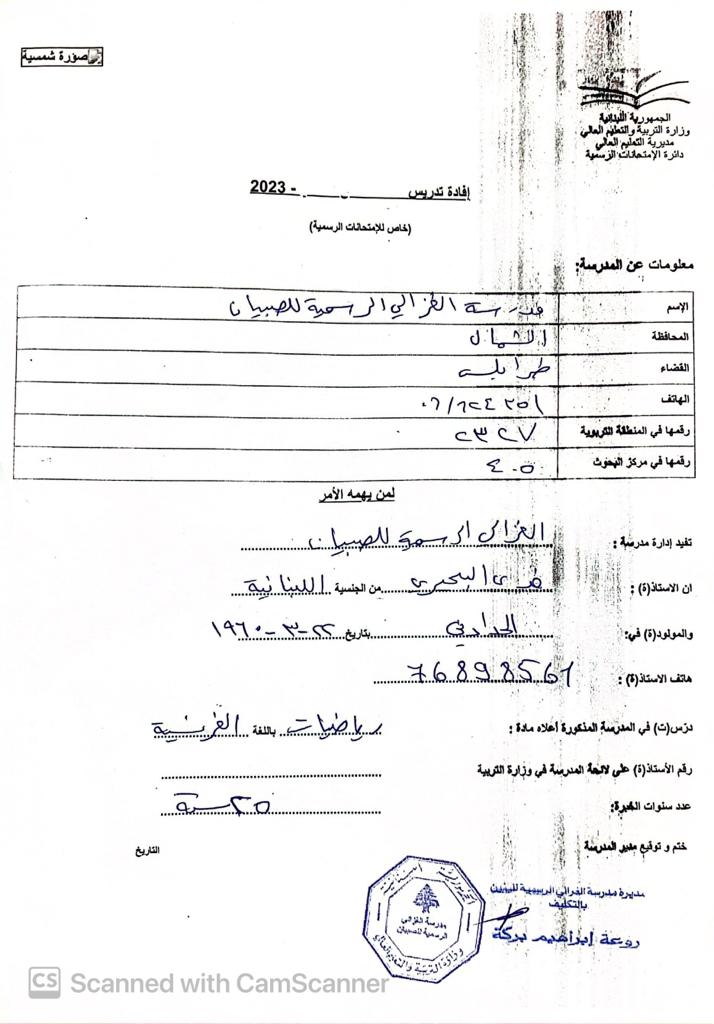 صورة شمسية
الجمهورية اللبنانية
وزارة التربية والتعليم العالي
مديرية التعليم العالي
دائرة الإمتحانات الرسمية
إفادة تدريس - 2023
(خاص للإمتحانات الرسمية)
معلومات عن المدرسة:
الإسم مدرسة الغزالي الرسمية للصبيان
المحافظة الشمال
القضاء طرابلس
الهاتف ٠٦/٦٢٤٢٥١
رقمها في المنطقة التربوية ٢٣٢٧
رقمها في مركز البحوث ٤٠٥
لمن يهمه الأمر
تفيد إدارة مدرسة : الغزالي الرسمية للصبيان
ان الاستاذ(ة) : البحري من الجنسية اللبنانية
والمولود(ة) في: الحدادين بتاريخ ٢٢-٣-١٩٦٠
هاتف الاستاذ(ة) : 76898561
درّس(ت) في المدرسة المذكورة أعلاه مادة : رياضيات باللغة الفرنسية
رقم الأستاذ(ة) على لائحة المدرسة في وزارة التربية
عدد سنوات الخبرة: ٢٥ سنة
ختم و توقيع مدير المدرسة
التاريخ
مديرة مدرسة الغزالي الرسمية للبنين
بالتكليف
روعة إبراهيم بركة
الجمهورية اللبنانية
مدرسة الغزالي
الرسمية للصبيان
وزارة التربية والتعليم العالي
CS Scanned with CamScanner